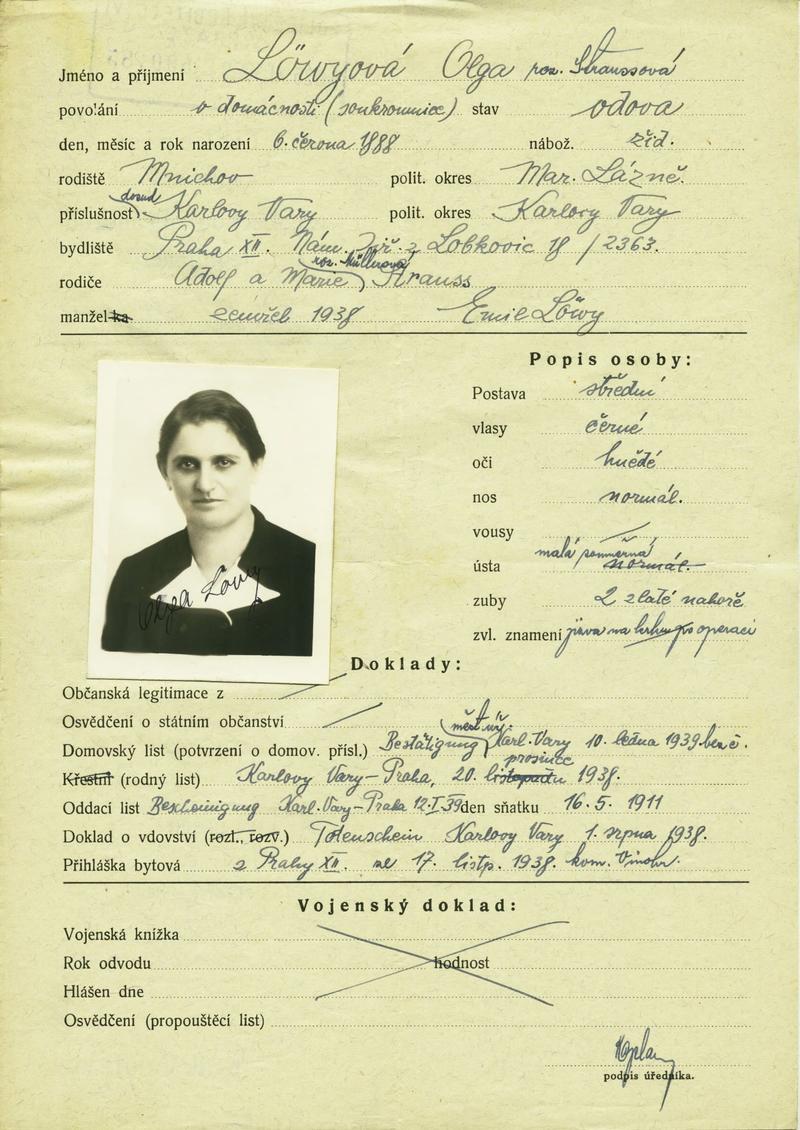 Jméno a příjmení Löwyová Olga roz. Straussová
povolání v domácnosti (soukromnice) stav vdova
den, měsíc a rok narození 6. června 1888 nábož. žid.
rodiště Mnichov polit. okres Mar. Lázně.
dosud
příslušnost Karlovy Vary polit. okres Karlovy Vary
bydliště Praha XII. Nám. Jiř. z Lobkovic 18 / 2363.
roz. Müllerová
rodiče Adolf a Marie Strauss
manželka zemřel 1938 Emil Löwy
Popis osoby:
Postava střední
vlasy černé
oči hnědé
nos normál.
vousy
malá souměrná
ústa normál.
zuby 2 zlaté nahoře
zvl. znamení jizva na krku po operaci
Olga Löwy
Doklady:
Občanská legitimace z
Osvědčení o státním občanství
měst. úř.
Domovský list (potvrzení o domov. přísl.) Bestätigung Karl. Vary 10. ledna 1939
prosince
Křestní (rodný list) Karlovy Vary – Praha, 20. listopadu 1938.
Oddací list Bescheinigung Karl. Vary – Praha 12.I.39 den sňatku 16. 5. 1911
Doklad o vdovství (rozl., rozv.) Totenschein Karlovy Vary 1. srpna 1938.
Přihláška bytová z Prahy XII. ze 17. listp. 1938. kom. Vinohr.
Vojenský doklad:
Vojenská knížka
Rok odvodu hodnost
Hlášen dne
Osvědčení (propouštěcí list)
podpis úředníka.